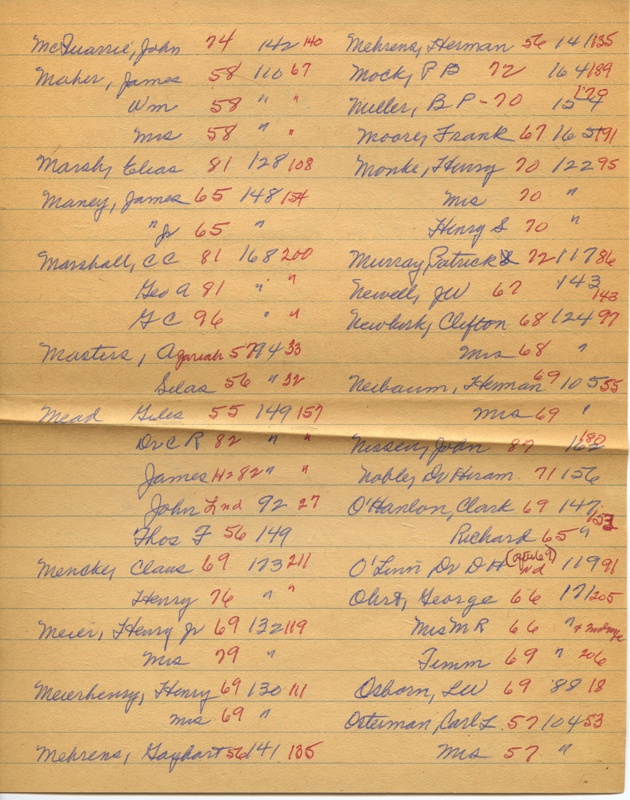 McQuarrie, John 74 142 140
Maher, James 58 110 67
Wm 58 " "
Mrs 58 " "
Marsh, Elias 81 128 108
Maney, James 65 148 154
" Jr 65 "
Marshall, C C 81 168 200
Geo A 81 " "
G C 96 " "
Masters, Azariah 57 94 33
Silas 56 " 32
Mead Giles 55 149 157
Dr C R 82 " "
James H 82 " "
John L nd 92 27
Thos F 56 149
Mencke, Claus 69 173 211
Henry 76 " "
Meier, Henry Jr 69 132 119
Mrs 79 "
Meierhenry, Henry 69 130 111
Mrs 69 "
Mehrens, Gayhart 56 141 135
Mehrens, Herman 56 141 135
Mock, P B 72 164 189
Miller, B P - 70 154 179
Moore, Frank 67 165 191
Monke, Henry 70 122 95
Mrs 70 "
Henry S 70 "
Murray, Patrick 72 117 86
Newell, J W 67 143 143
Newkirk, Clifton 68 124 97
Mrs 68 "
Neibaum, Herman 69 105 55
Mrs 69 "
Nissen, John 87 162 180
Noble, Dr Hiram 71 156
O'Hanlon, Clark 69 147 152
Richard 65 "
O'Linn Dr D H (after 69) nd 119 91
Ohrt, George 66 171 205
Mrs M R 66 " +
Timm 69 " 206
Osborn, L W 69 88 18
Osterman, Carl L 57 104 53
Mrs 57 "